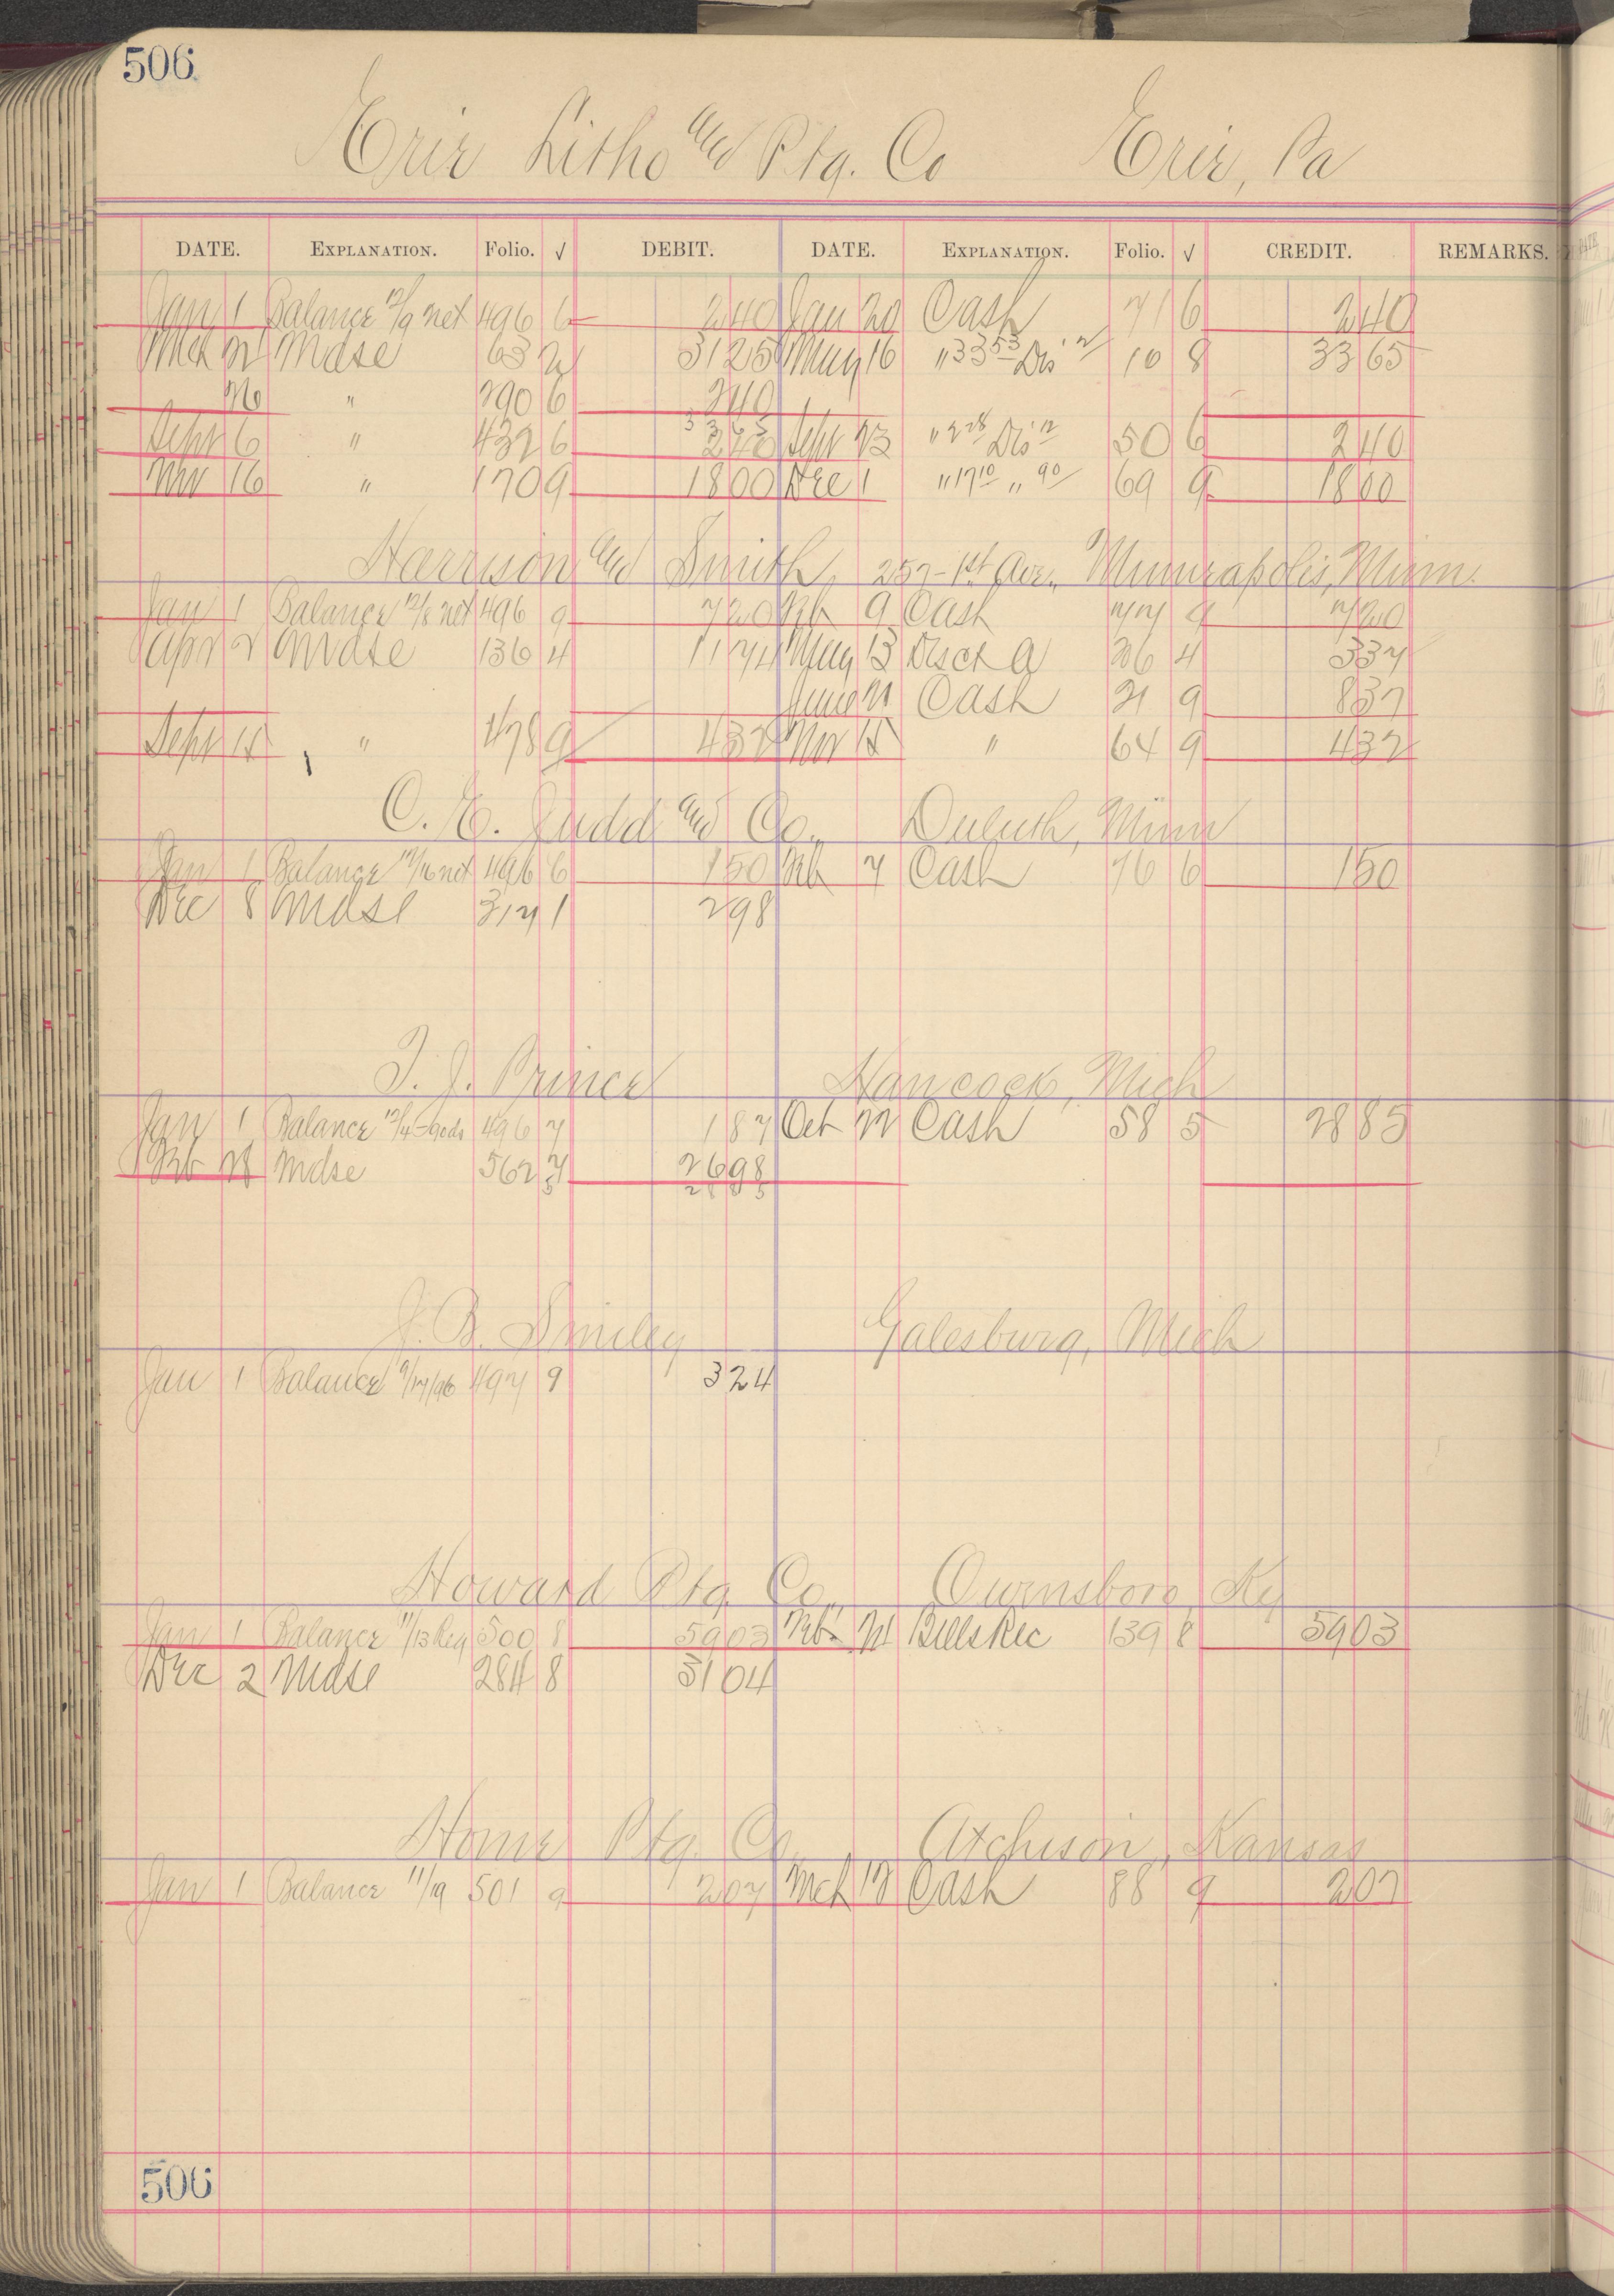 506
Erie Litho and Ptg. Co Erie, Pa
DATE. EXPLANATION. Folio. √ DEBIT. DATE. EXPLANATION. Folio. √ CREDIT. REMARKS.
Jan 1 Balance 12/9 net 496 6 2 40 Jan 20 Cash 71 6 2 40
Mch 12 Mdse 63 2 31 25 May 16 " 33 53 Dis 12 10 8 33 65
" 290 6 2 40
33 65
Sept 6 " 432 6 2 40 Sept 23 " 2 28 Dis 12 50 6 2 40
Nov 16 " 170 9 18 00 Dec 1 " 17 10 " 90 69 9 18 00
Harrison and Smith, 257-1st Ave., Minneapolis, Minn.
Jan 1 Balance 12/8 net 496 9 7 20 Feb 9 Cash 77 9 7 20
Apr 2 Mdse 136 4 11 74 May 13 Disct A 26 4 3 37
June 21 Cash 21 9 8 37
Sept 15 " 478 9 4 32 Nov 15 " 64 9 4 32
C. E. Judd and Co. Duluth, Minn
Jan 1 Balance 12/16 net 496 6 1 50 Feb 7 Cash 76 6 1 50
Dec 8 Mdse 317 1 2 98
T. J. Prince Hancock, Mich
Jan 1 Balance 12/4-90ds 496 7 1 87 Oct 22 Cash 58 5 28 85
Feb 28 Mdse 562 7 26 98
5 28 85
J. B. Smiley Galesburg, Mich
Jan 1 Balance 9/17/96 497 9 3 24
Howard Ptg. Co. Owensboro, Ky
Jan 1 Balance 11/13 Reg 500 8 59 03 Feb 21 Bills Rec 139 8 59 03
Dec 2 Mdse 284 8 31 04
Home Ptg. Co. Atchison, Kansas
Jan 1 Balance 11/19 501 9 2 07 Mch 18 Cash 88 9 2 07
506